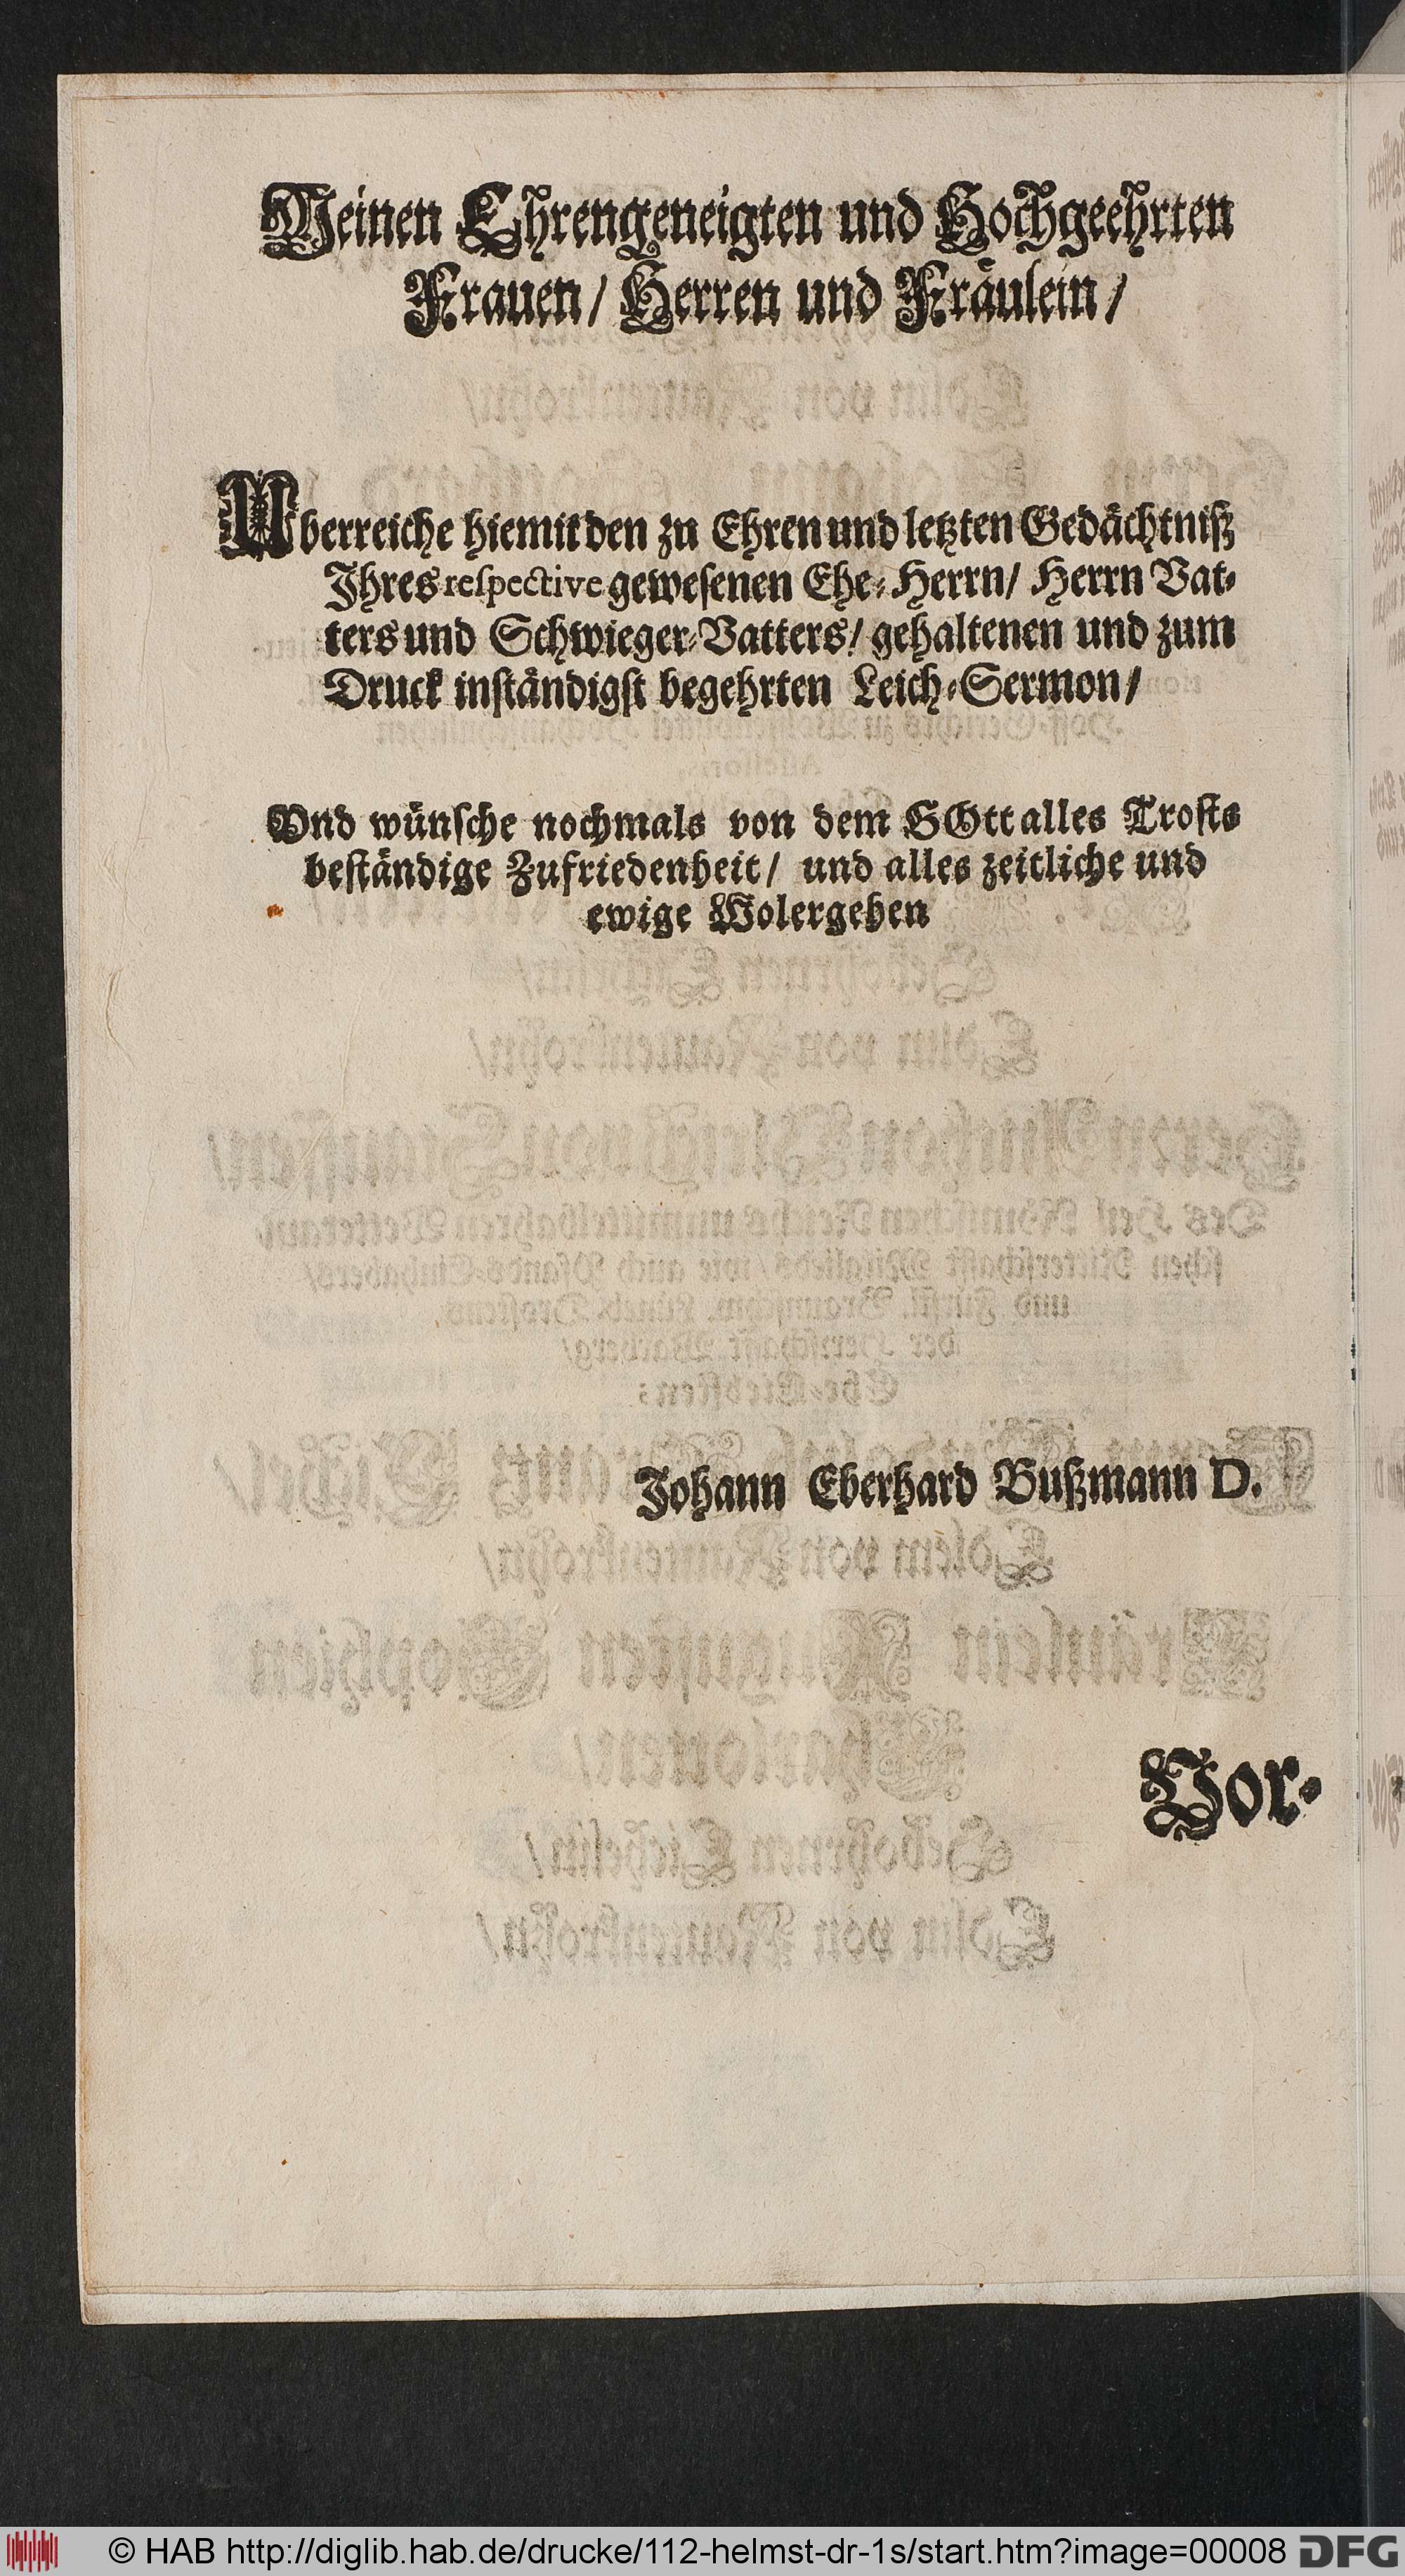 Meinen Ehrengeneigten und Hochgeehrten
Frauen/ Herren und Fräulein/
Uberreiche hiemit den zu Ehren und letzten Gedächtniß
Ihres respective gewesenen Ehe-Herrn/ Herrn Vat-
ters und Schwieger-Vatters/ gehaltenen und zum
Druck inständigst begehrten Leich-Sermon/
Vnd wünsche nochmals von dem GOtt alles Trosts
beständige Zufriedenheit/ und alles zeitliche und
ewige Wolergehen
Johann Eberhard Bußmann D.
Vor-
© HAB http://diglib.hab.de/drucke/112-helmst-dr-1s/start.htm?image=00008 DFG